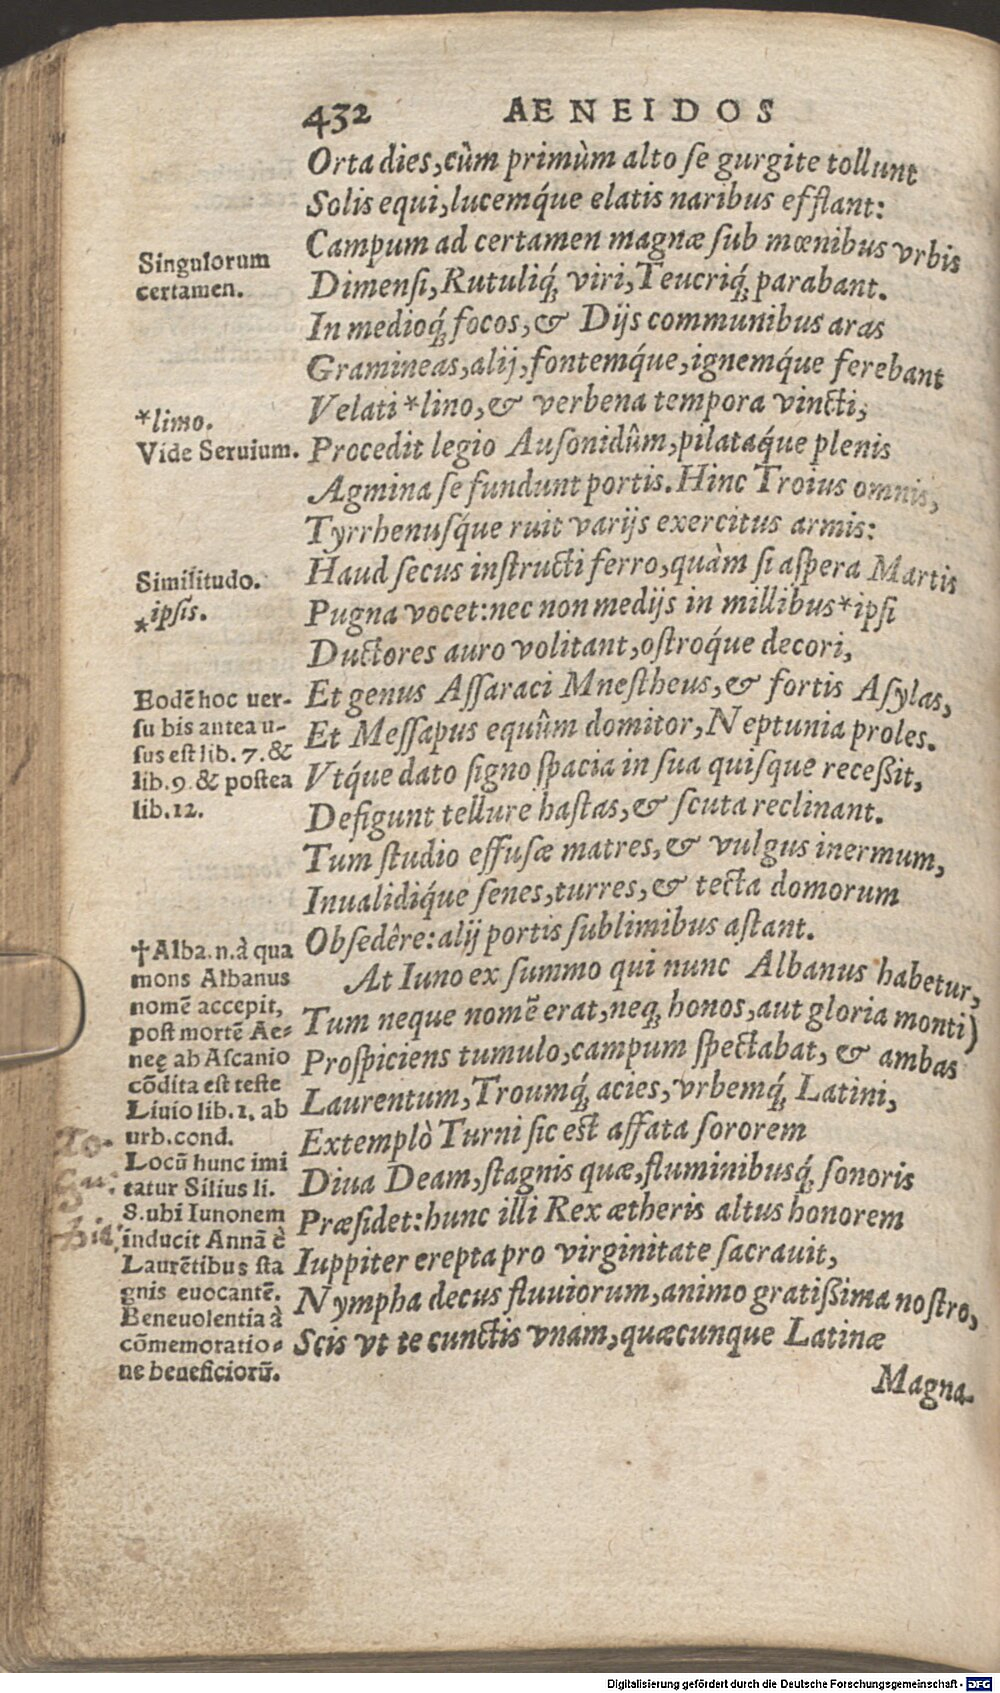 432 AENEIDOS
Orta dies, cùm primùm alto se gurgite tollunt
Solis equi, lucemq́ue elatis naribus efflant:
Campum ad certamen magnæ sub mœnibus vrbis
Dimensi, Rutuliq́; viri, Teucriq́; parabant.
In medioq́; focos, & Dijs communibus aras
Gramineas, alij, fontemq́ue, ignemq́ue ferebant
Velati *lino, & verbena tempora vincti;
Procedit legio Ausonidûm, pilataq́ue plenis
Agmina se fundunt portis. Hinc Troius omnis,
Tyrrhenusq́ue ruit varijs exercitus armis:
Haud secus instructi ferro, quàm si aspera Martis
Pugna vocet: nec non medijs in millibus *ipsi
Ductores auro volitant, ostroq́ue decori,
Et genus Assaraci Mnestheus, & fortis Asylas,
Et Messapus equûm domitor, Neptunia proles.
Vtq́ue dato signo spacia in sua quisque recessit,
Defigunt tellure hastas, & scuta reclinant.
Tum studio effusæ matres, & vulgus inermum,
Inualidiq́ue senes, turres, & tecta domorum
Obsedêre: alij portis sublimibus astant.
At Iuno ex summo qui nunc Albanus habetur,
Tum neque nomē erat, neq; honos, aut gloria monti)
Prospiciens tumulo, campum spectabat, & ambas
Laurentum, Troumq́; acies, vrbemq́; Latini,
Extemplò Turni sic est affata sororem
Diua Deam, stagnis quæ, fluminibusq́; sonoris
Præsidet: hunc illi Rex ætheris altus honorem
Iuppiter erepta pro virginitate sacrauit,
Nympha decus fluuiorum, animo gratissima nostro,
Scis vt te cunctis vnam, quæcunque Latinæ
Magna-
Singulorum
certamen.
*limo.
Vide Seruium.
Similitudo.
*ipsis.
Eodē hoc uer-
su bis antea u-
sus est lib. 7. &
lib. 9 & postea
lib. 12.
†Alba. n. à qua
mons Albanus
nomē accepit,
post mortē Ae-
neę ab Ascanio
cōdita est teste
Liuio lib. 1. ab
urb. cond.
Locū hunc imi
tatur Silius li.
8. ubi Iunonem
inducit Annā è
Laurētibus sta
gnis euocantē.
Beneuolentia à
cōmemoratio-
ne beneficiorū.
Digitalisierung gefördert durch die Deutsche Forschungsgemeinschaft - DFG